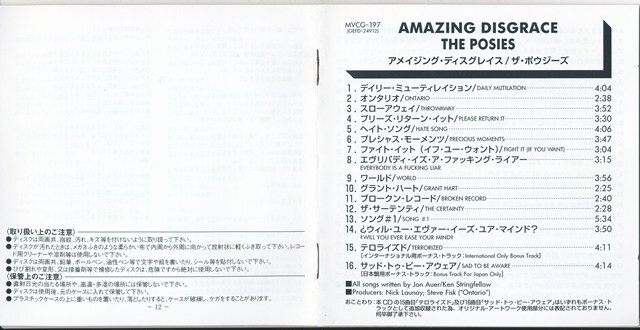 〈取り扱い上のご注意〉
●ディスクは両面共、指紋、汚れ、キズ等を付けないように取り扱って下さい。
●ディスクが汚れたときは、メガネふきのような柔らかい布で内周から外周に向かって放射状に軽くふき取って下さい。レコー
ド用クリーナーや溶剤等は使用しないで下さい。
●ディスクは両面共、鉛筆、ボールペン、油性ペン等で文字や絵を書いたり、シール等を貼付しないで下さい。
●ひび割れや変形、又は接着剤等で補修したディスクは、危険ですから絶対に使用しないで下さい。
〈保管上のご注意〉
●直射日光の当たる場所や、高温・多湿の場所には保管しないで下さい。
●ディスクは使用後、元のケースに入れて保管して下さい。
●プラスチックケースの上に重いものを置いたり、落としたりすると、ケースが破損し、ケガをすることがあります。
- 12 -
MVCG-197
(GEFD-24912)
AMAZING DISGRACE
THE POSIES
アメイジング・ディスグレイス/ザ・ポウジーズ
1. デイリー・ミューティレイション/DAILY MUTILATION 4:04
2. オンタリオ/ONTARIO 2:38
3. スローアウェイ/THROWAWAY 3:52
4. プリーズ・リターン・イット/PLEASE RETURN IT 3:30
5. ヘイト・ソング/HATE SONG 4:06
6. プレシャス・モーメンツ/PRECIOUS MOMENTS 3:47
7. ファイト・イット(イフ・ユー・ウォント)/FIGHT IT (IF YOU WANT) 3:04
8. エヴリバディ・イズ・ア・ファッキング・ライアー 3:15
EVERYBODY IS A FUCKING LIAR
9. ワールド/WORLD 3:56
10. グラント・ハート/GRANT HART 2:25
11. ブロークン・レコード/BROKEN RECORD 2:40
12. ザ・サーテンティ/THE CERTAINTY 2:28
13. ソング#1/SONG #1 5:34
14. ¿ウィル・ユー・エヴァー・イーズ・ユア・マインド? 3:50
¿WILL YOU EVER EASE YOUR MIND?
15. テロライズド/TERRORIZED 4:11
[インターナショナル用ボーナス・トラック:International Only Bonus Track]
16. サッド・トゥ・ビー・アウェア/SAD TO BE AWARE 4:14
[日本国用ボーナス・トラック:Bonus Track For Japan Only]
■All songs written by Jon Auer/Ken Stringfellow
■Producers: Nick Launay; Steve Fisk ("Ontario")
おことわり:本CDの15曲目「テロライズド」及び16曲目「サッド・トゥ・ビー・アウェア」はいずれもボーナス・ト
ラックとして追加収録された為、オリジナル・アートワーク使用部分には表記されておりません。
何卒御了承下さい。